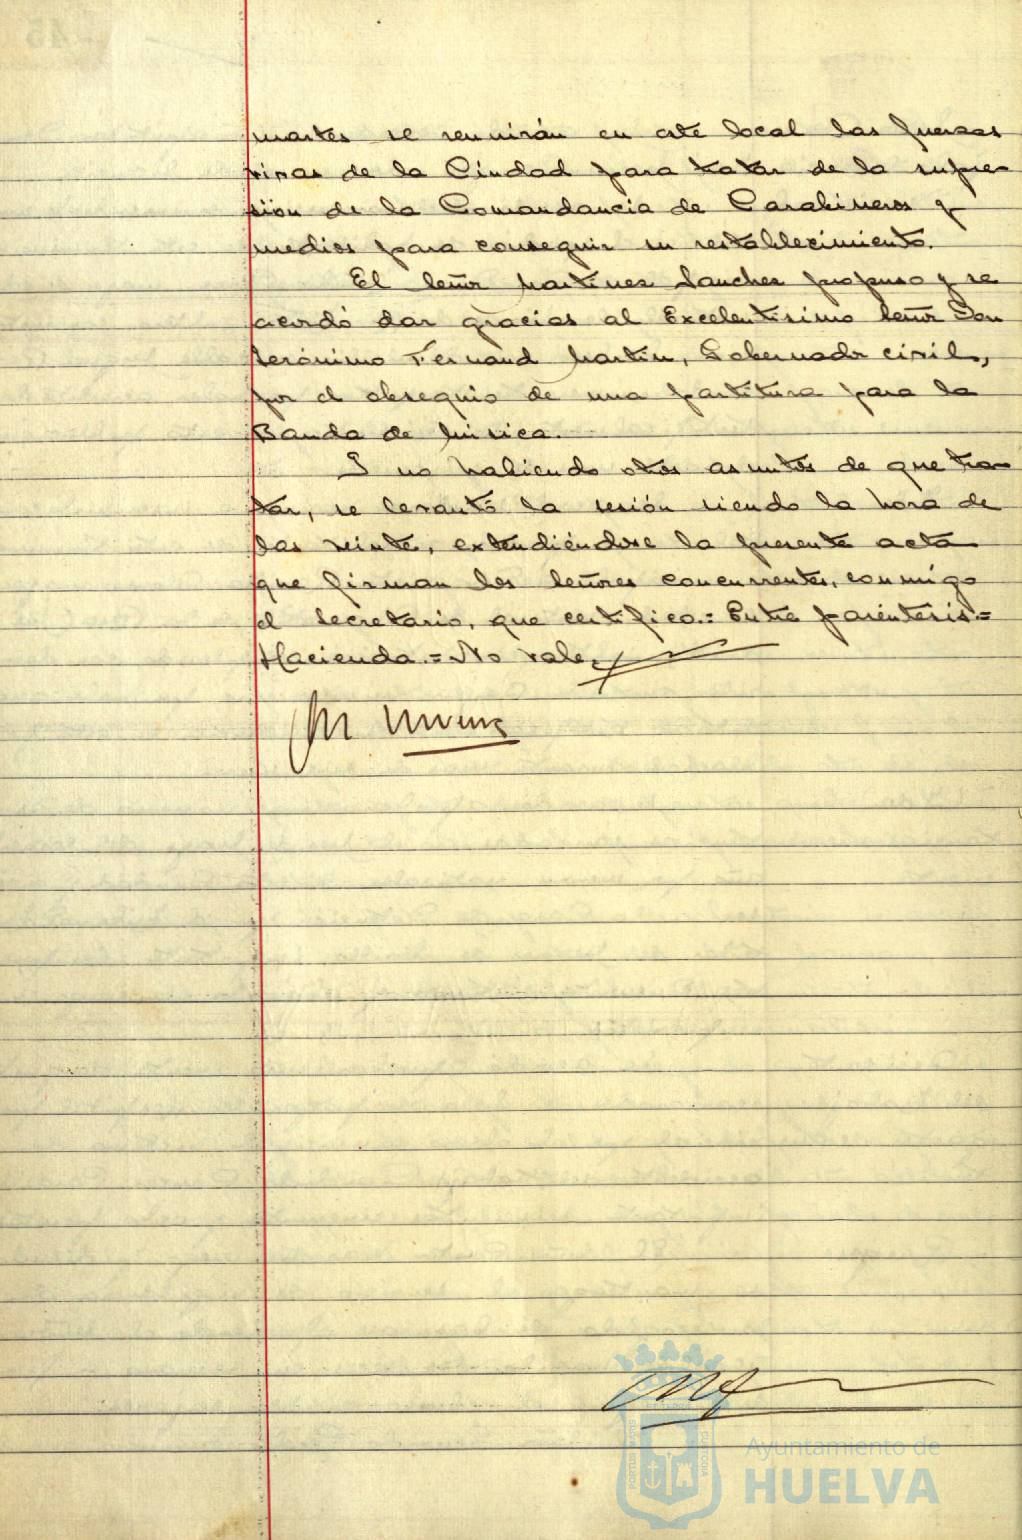 martes se reunirán en este local las fuerzas
vivas de la Ciudad para tratar de la supre-
sión de la Comandancia de Carabineros y
medios para conseguir su restablecimiento.
El Señor Martínez Sanchez propuso y se
acordó dar gracias al Excelentísimo Señor Don
Jerónimo Fernaud Martín, Gobernador civil,
por el obsequio de una partitura para la
Banda de Música.
Y no habiendo otros asuntos de que tra-
tar, se levantó la sesión siendo la hora de
las veinte, extendiéndose la presente acta
que firman los Señores concurrentes, conmigo
el Secretario, que certifico.= Entre paréntesis.=
Hacienda.= No vale.
PORTUS MARIS
CUSTODIA
Ayuntamiento de
HUELVA